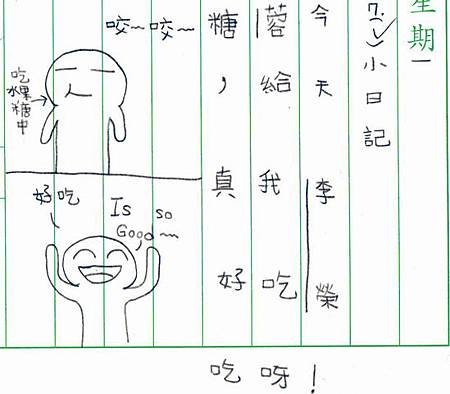 星期一
小日記
今天李榮
蓉給我吃
糖，真好
吃呀！
咬~咬~
吃
水果糖中
好吃
Is so
Gooo~